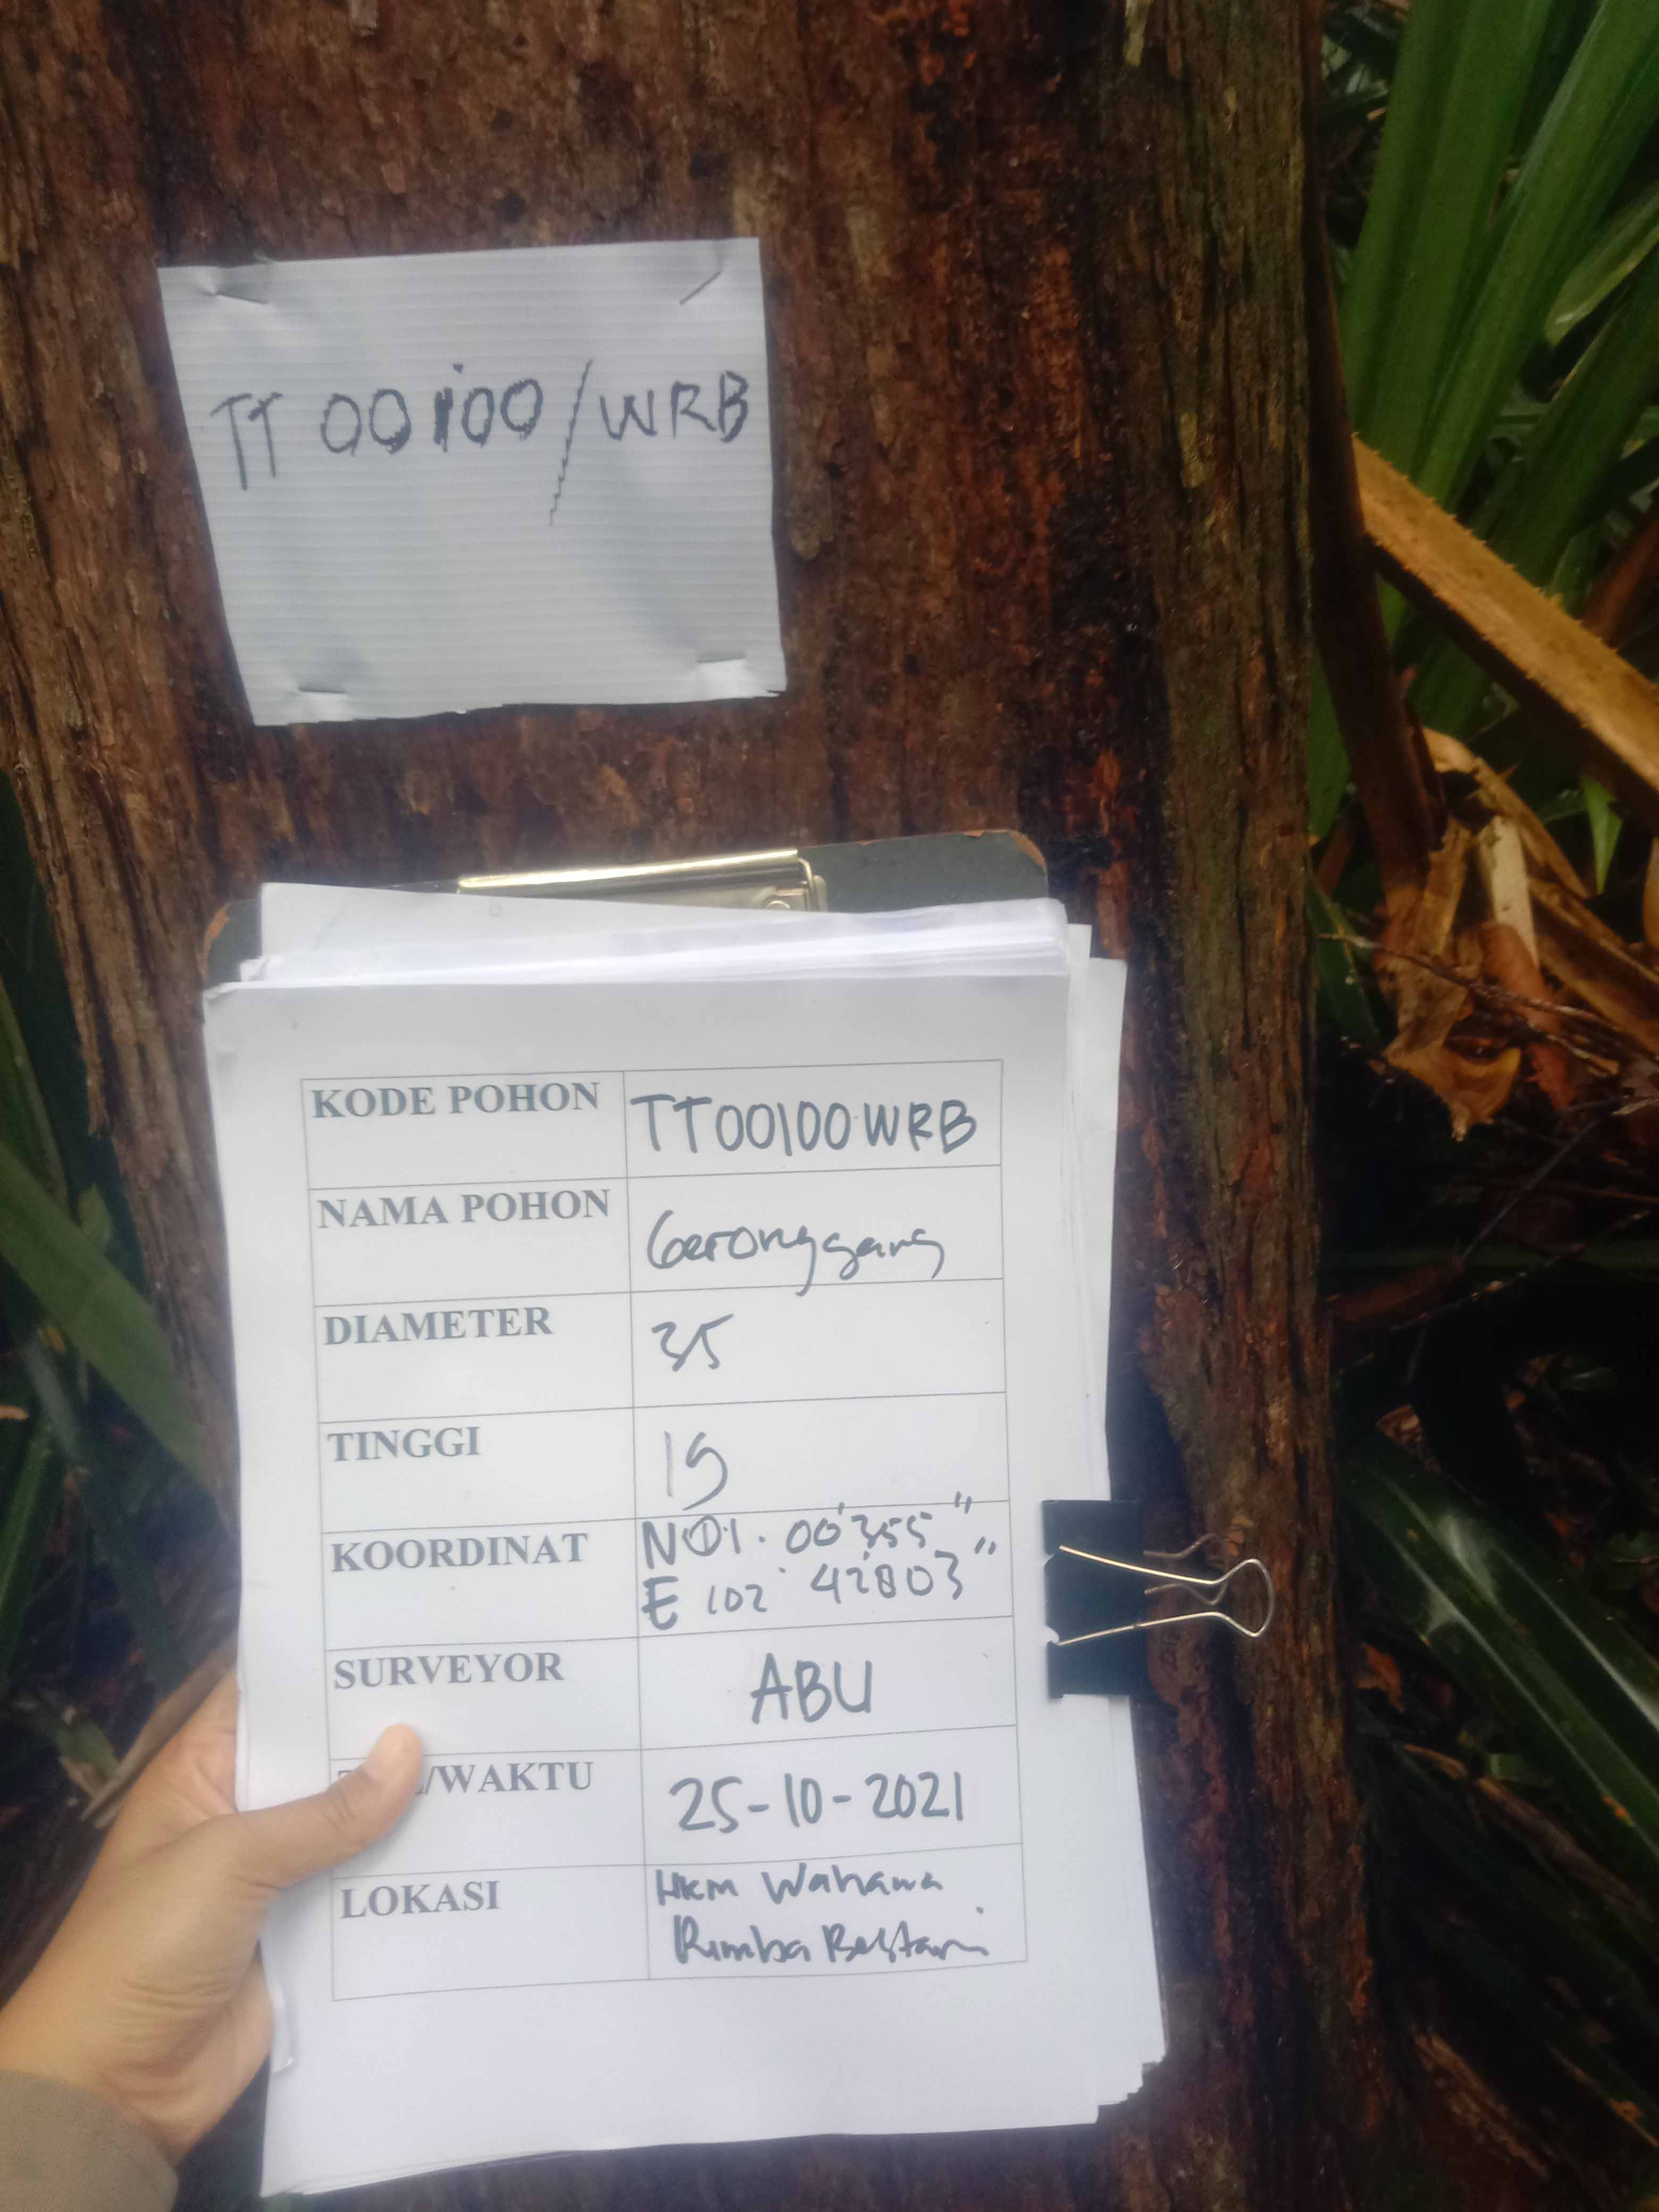 TT 00100/WRB
KODE POHON TT00100WRB
NAMA POHON Geronggang
DIAMETER 35
TINGGI 15
KOORDINAT N01. 00'355"
E 102° 42'803"
SURVEYOR ABU
/WAKTU 25-10-2021
LOKASI HKm Wahana
Rimba Bestari